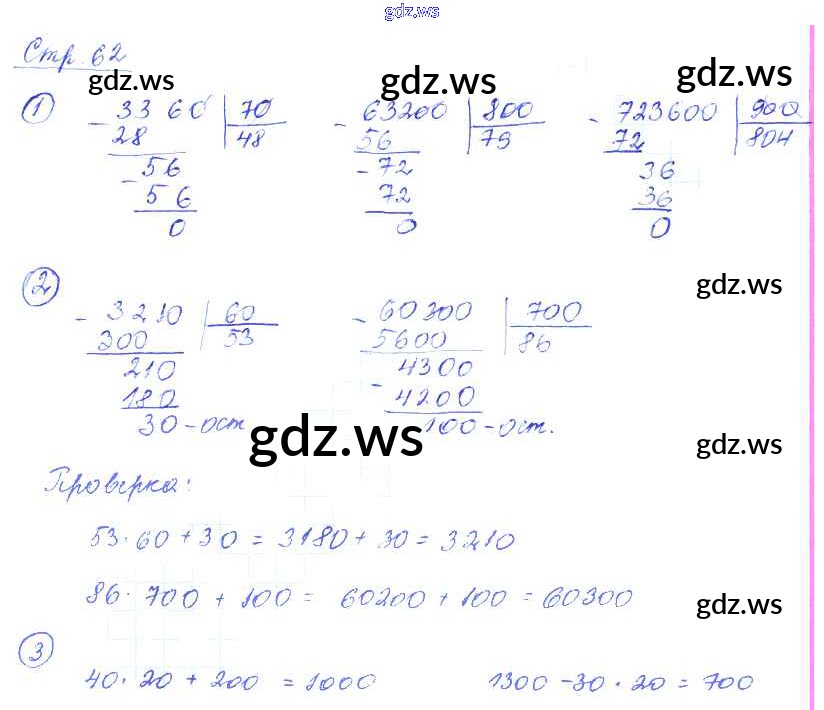 gdz.ws
Стр. 62
gdz.ws gdz.ws gdz.ws
1 - 3360 | 70 - 63200 | 800 - 723600 | 900
28 | 48 56 | 79 72 | 804
- 56 - 72 36
56 72 36
0 0 0
2
gdz.ws
- 3210 | 60 - 60300 | 700
300 | 53 5600 | 86
210 4300
180 - 4200
30 - ост 100 - ост.
gdz.ws gdz.ws
Проверка:
53 · 60 + 30 = 3180 + 30 = 3210
86 · 700 + 100 = 60200 + 100 = 60300
gdz.ws
3
40 · 20 + 200 = 1000 1300 - 30 · 20 = 700